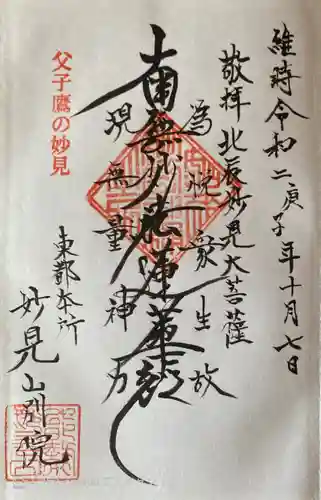 維時令和二庚子年十月七日
敬拝北辰妙見大菩薩
為悦衆生故
南無妙法蓮華経
現無量神力
父子鷹の妙見
東都本所
妙見山別院